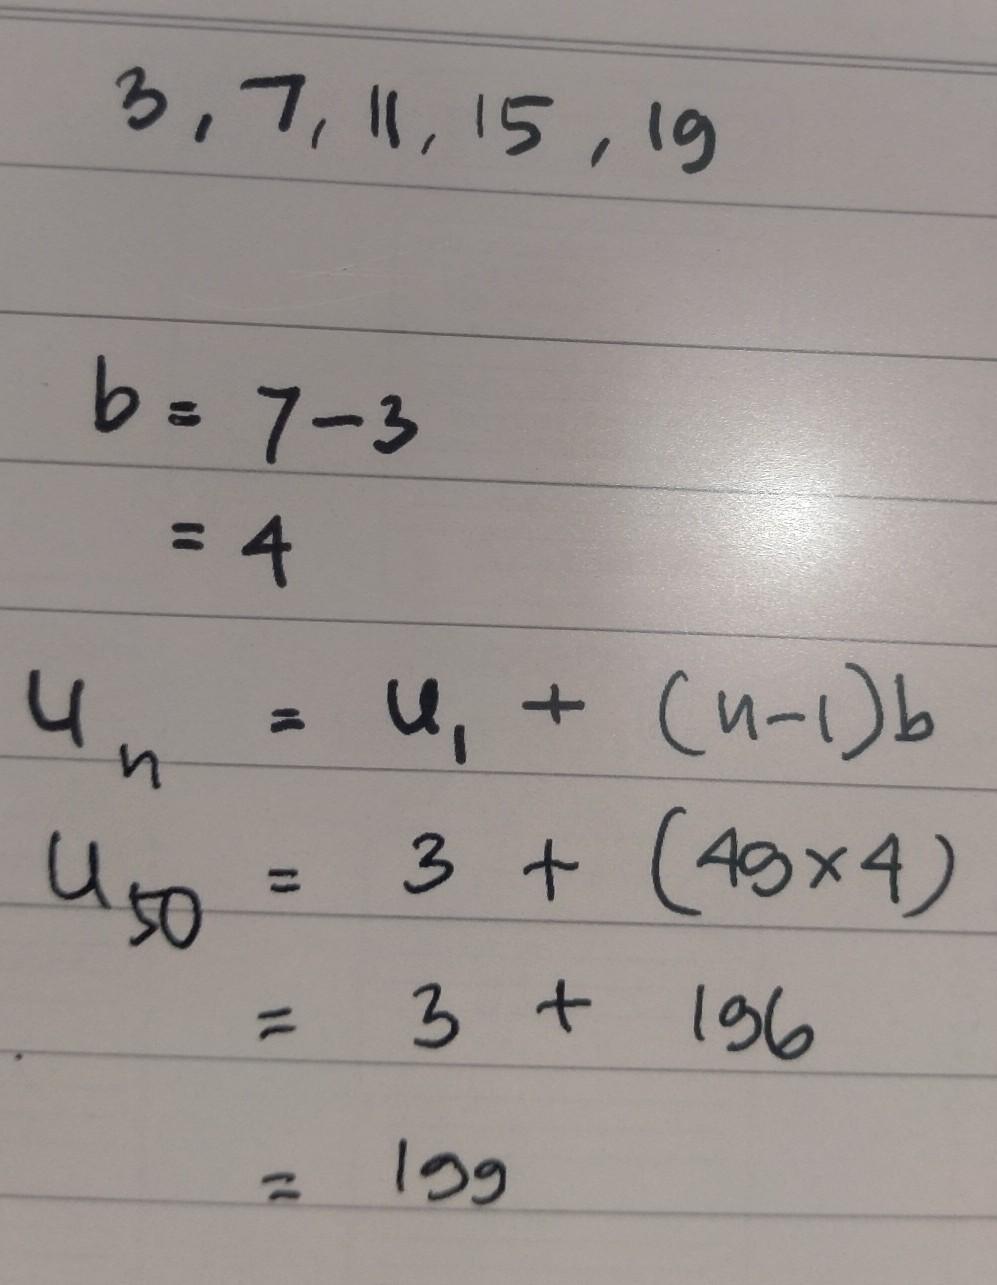 3, 7, 11, 15, 19
b = 7-3
= 4
U_n = U_1 + (n-1)b
U_50 = 3 + (49×4)
= 3 + 196
= 199